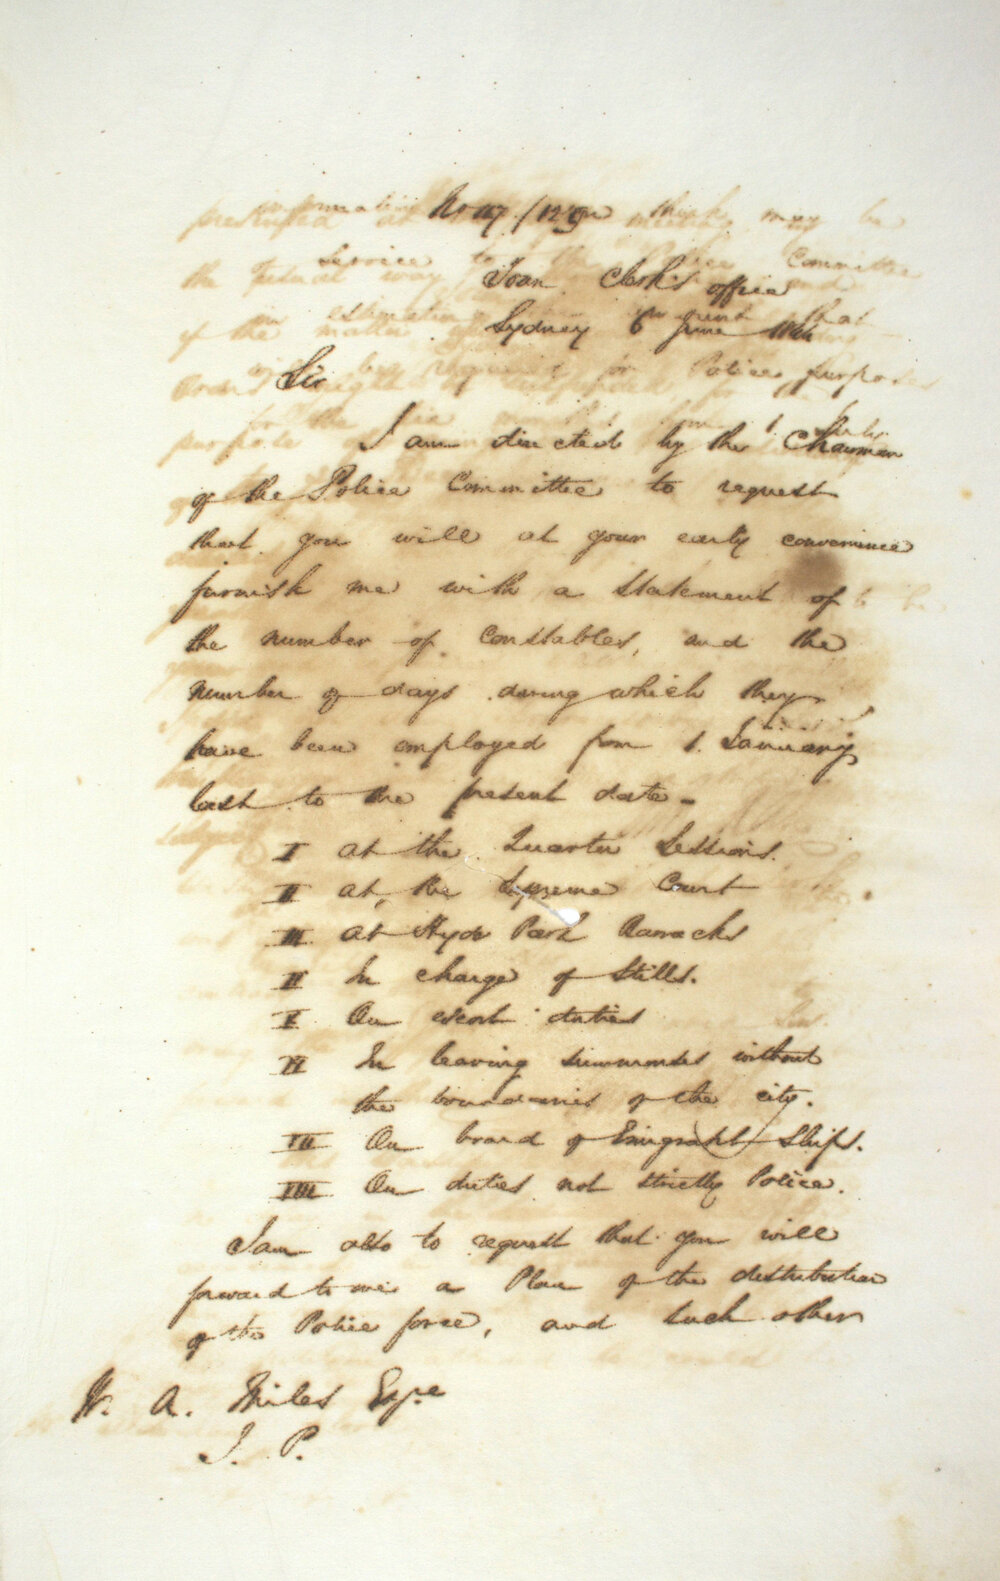 Town Clerk's office
Sydney 6 June 1844
Sir
I am directed by the Chairman
of the Police Committee to request
that you will at your early convenience
furnish me with a statement of
the number of constables, and the
number of days during which they
have been employed from 1. January
last to the present date -
I at the Quarter Sessions.
II at the Supreme Court
III at Hyde Park Barracks
IV In charge of Stills.
V On escort duties
VI In leaving summonses without
the boundaries of the city.
VII On board of Emigrant Ships.
VIII On duties not strictly Police.
I am also to request that you will
forward to me a Plan of the distribution
of the Police force, and such other
W. A. Miles Esqre
J. P.